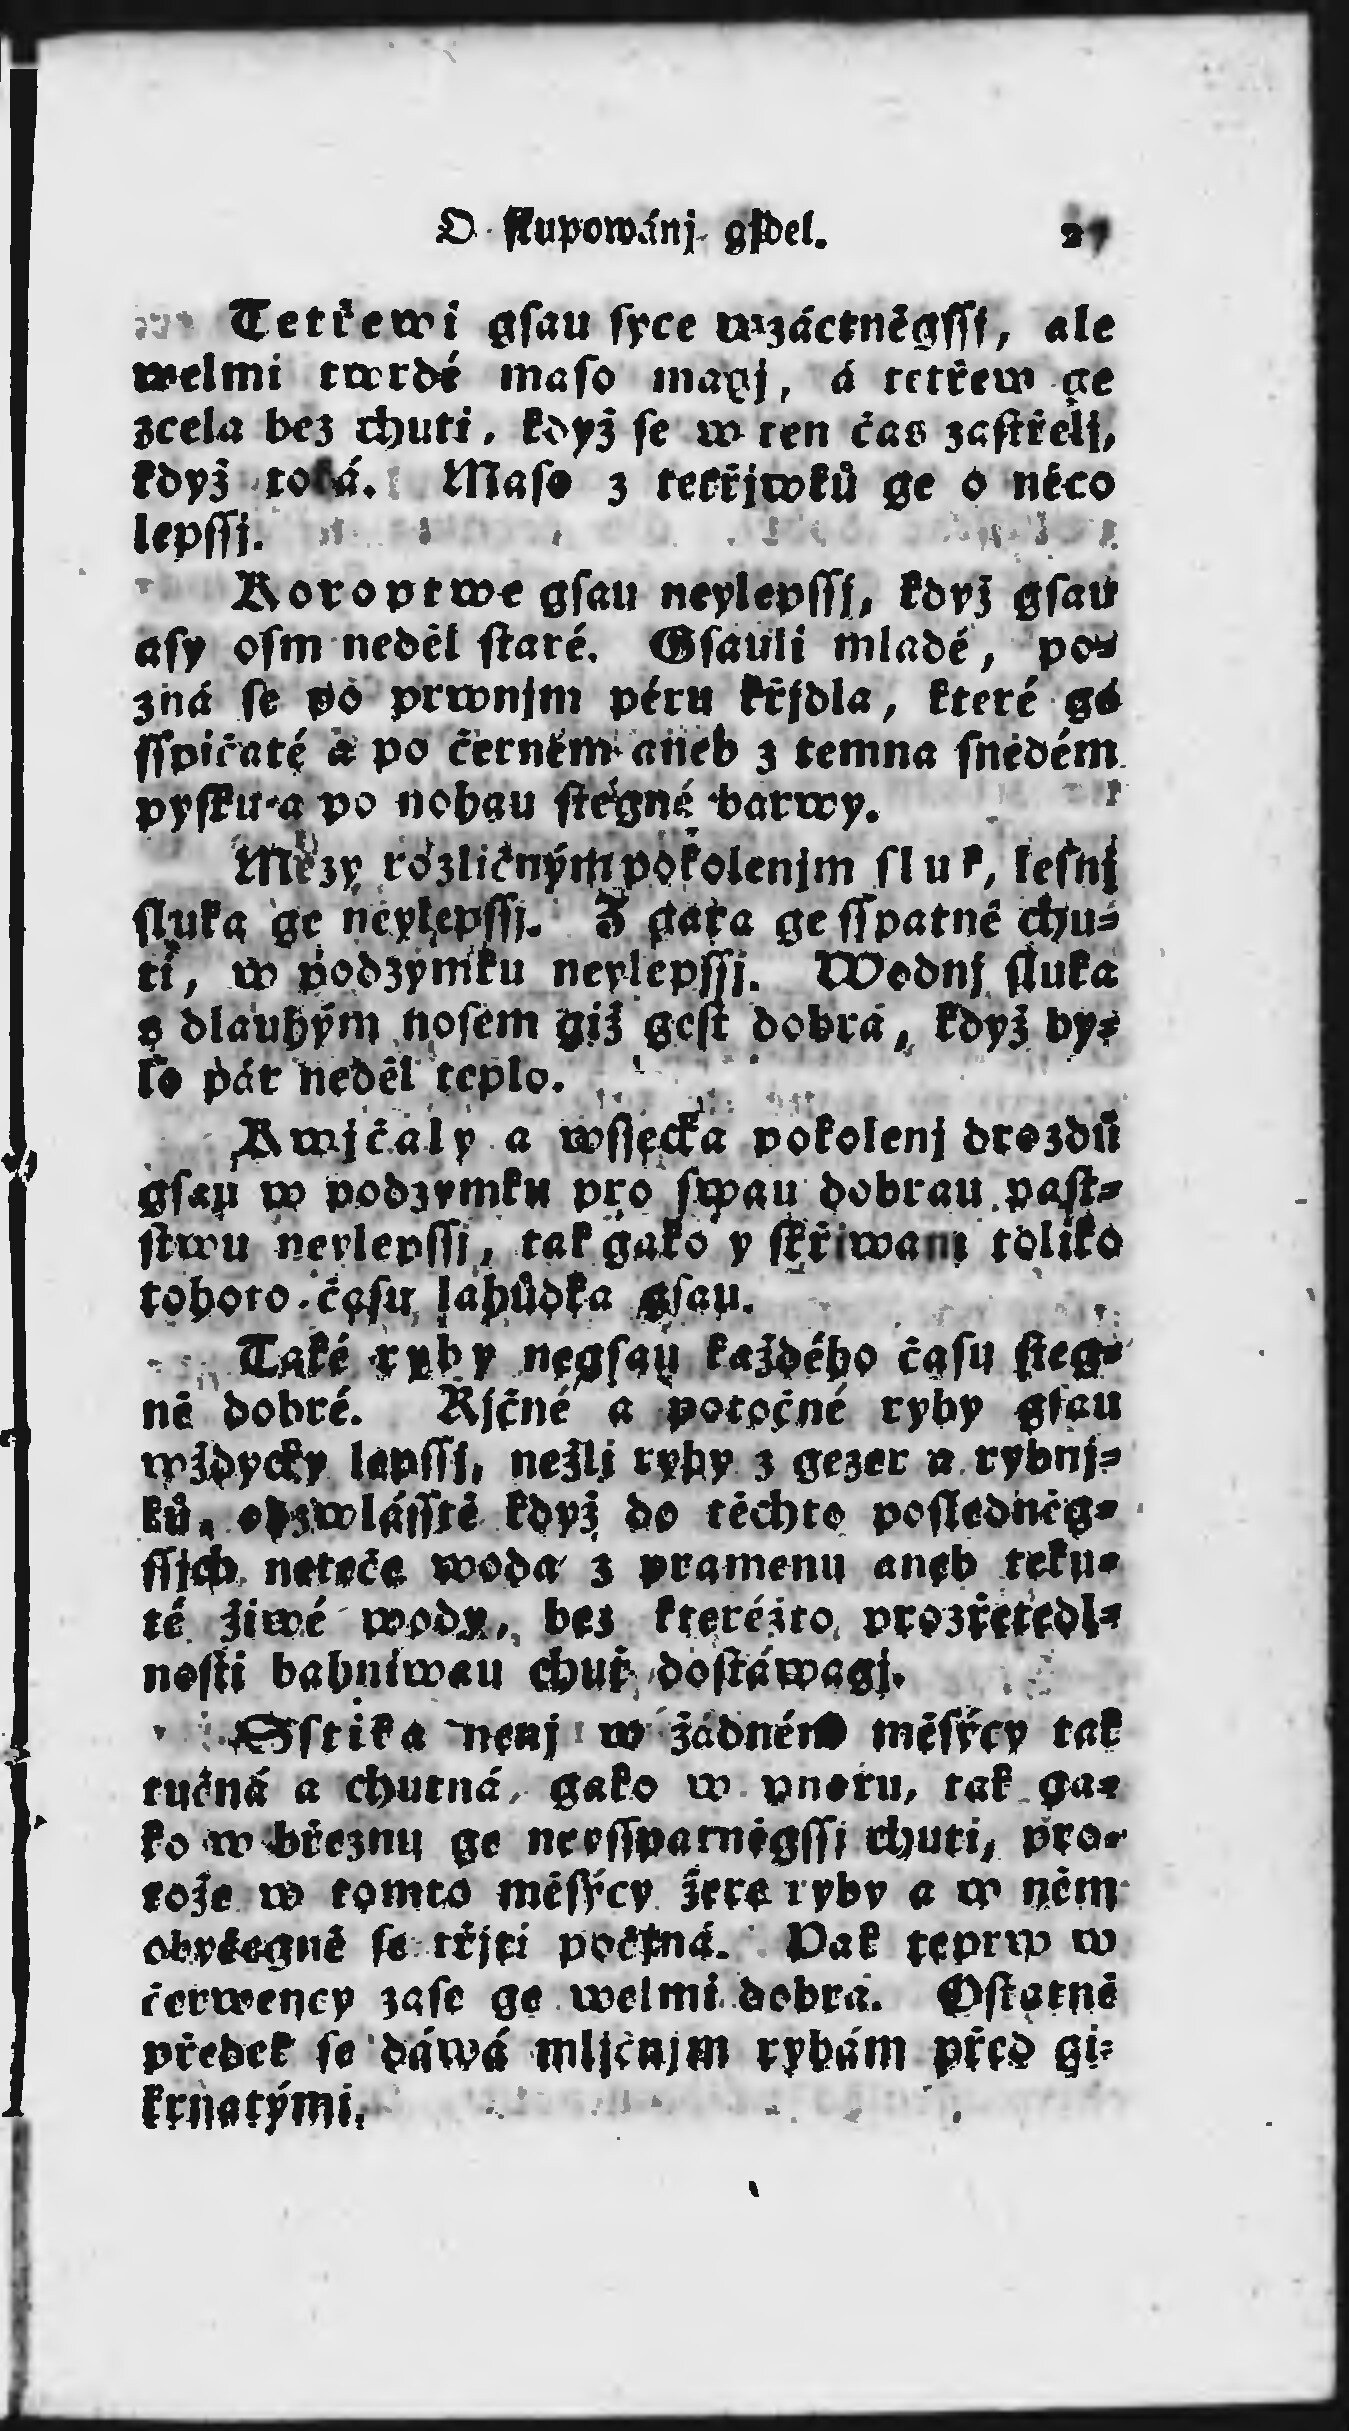 O skupowánj gjdel. 27
Tetřewi gsau syce wzáctněgssj, ale
welmi twrdé maso magj, á tetřew ge
zcela bez chuti, když se w ten čas zastřelj,
když toká. Maso z tetřjwků ge o něco
lepssj.
Koroptwe gsau neylepssj, když gsau
asy osm neděl staré. Gsauli mladé, po-
zná se po prwnjm péru křjdla, které ge
sspičaté a po černém aneb z temna snědém
pysku a po nohau stegné barwy.
Mezy rozličným pokolenjm sluk, lesnj
sluka ge neylepssj. Z gara ge sspatné chu-
ti, w podzymku neylepssj. Wodnj sluka
s dlauhým nosem giž gest dobrá, když by-
lo pár neděl teplo.
Kwjčaly a wssecka pokolenj drozdů
gsau w podzymku pro swau dobrau past-
stwu neylepssj, tak gako y skřiwani toliko
tohoto času lahůdka gsau.
Také ryby negsau každého času steg-
ně dobré. Řjčné a potočné ryby gsau
wždycky lepssj, nežli ryby z gezer a rybnj-
ků, obzwlásstě když do těchto posledněg-
ssjch neteče woda z pramenu aneb teku-
té žiwé wody, bez kteréžto prozřetedl-
nosti bahniwau chuť dostáwagj.
Sstika nenj w žádném měsýcy tak
tučná a chutná, gako w unoru, tak ga-
ko w březnu ge neysspatněgssj chuti, pro-
tože w tomto měsýcy žere ryby a w něm
obyčegně se třjti počjná. Pak teprw w
čerwency zase ge welmi dobrá. Ostatně
předek se dáwá mljčnjm rybám před gi-
krnatými.